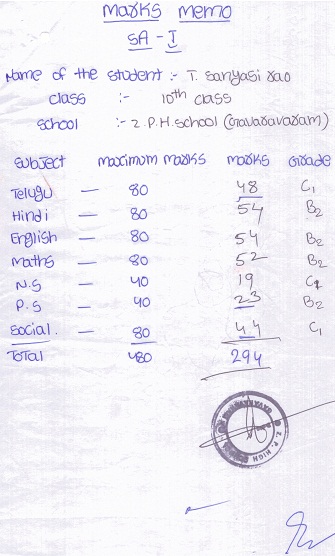 Marks Memo
SA - I
Name of the student :- T. Sanyasi rao
class :- 10th class
school :- Z.P.H.school (Gravaravaram)
Subject maximum marks marks Grade
Telugu — 80 48 C1
Hindi — 80 54 B2
English — 80 54 B2
Maths — 80 52 B2
N.S — 40 19 C1
P.S — 40 23 B2
Social. — 80 44 C1
Total 480 294
Z. P. HIGH